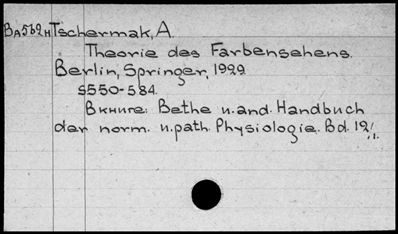 BA562H Tschermak, A.
Theorie des Farbensehens.
Berlin, Springer, 1929.
S550-584.
В книге: Bethe u. and. Handbuch
der norm. u. path. Physiologie. Bd. 12/1.